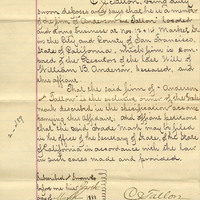 C. Fallon, being duly
sworn, deposes and says that he is a member
of the firm of "Anderson & Fallon" located
and doing business at No. Market St.
in the City and County of San Francisco,
State of California, which firm is com-
posed of the Executors of the late Will of
William B. Anderson, deceased, and this
affiant.
That the said firm of "Anderson
& Fallon" is the exclusive owner of the Trade
Mark described in the specification accom-
panying this affidavit, and affiant desires
that the said Trade Mark may be filed
in the office of the Secretary of State of the State
of California in accordance with the law
in such cases made and provided.
Subscribed & sworn to
before me this
C. Fallon